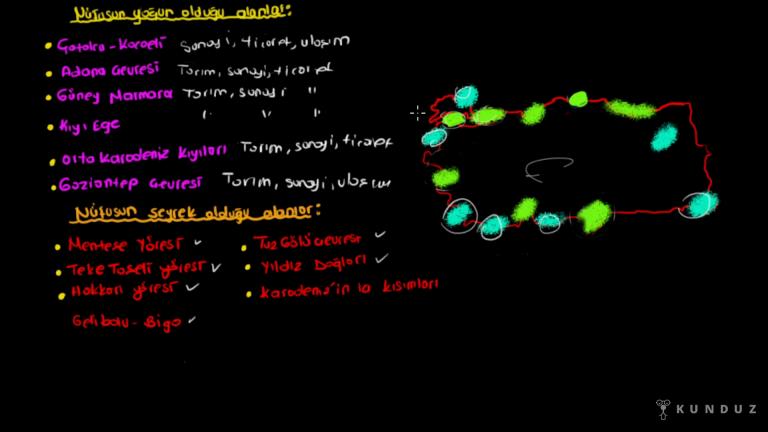 Nüfusun yoğun olduğu alanlar:
Çatalca-Kocaeli Sanayi, ticaret, ulaşım
Adana Çevresi Tarım, sanayi, ticaret
Güney Marmara Tarım, sanayi "
Kıyı Ege " "
Orta Karadeniz Kıyıları Tarım, sanayi, ticaret
Gaziantep Çevresi Tarım, sanayi, ulaşım
Nüfusun seyrek olduğu alanlar:
Menteşe Yöresi
Tuz Gölü Çevresi
Teke Taşeli yöresi
Yıldız Dağları
Hakkari yöresi
Karadeniz'in iç kısımları
Gelibolu-Biga
KUNDUZ